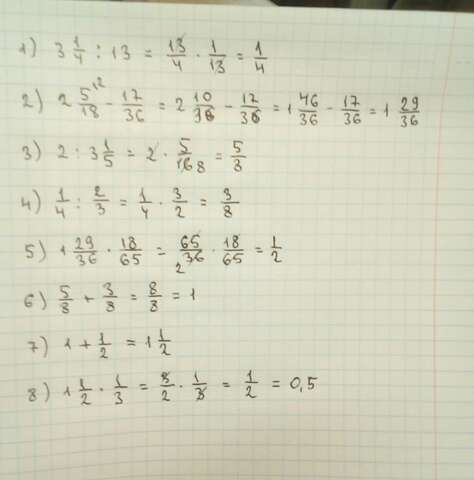 1) 3 1/4 : 13 = 13/4 · 1/13 = 1/4
2) 2 5/18 ² - 17/36 = 2 10/36 - 17/36 = 1 46/36 - 17/36 = 1 29/36
3) 2 : 3 1/5 = 2 · 5/16 8 = 5/8
4) 1/4 : 2/3 = 1/4 · 3/2 = 3/8
5) 1 29/36 · 18/65 = 65/36 2 · 18/65 = 1/2
6) 5/8 + 3/8 = 8/8 = 1
7) 1 + 1/2 = 1 1/2
8) 1 1/2 · 1/3 = 3/2 · 1/3 = 1/2 = 0,5